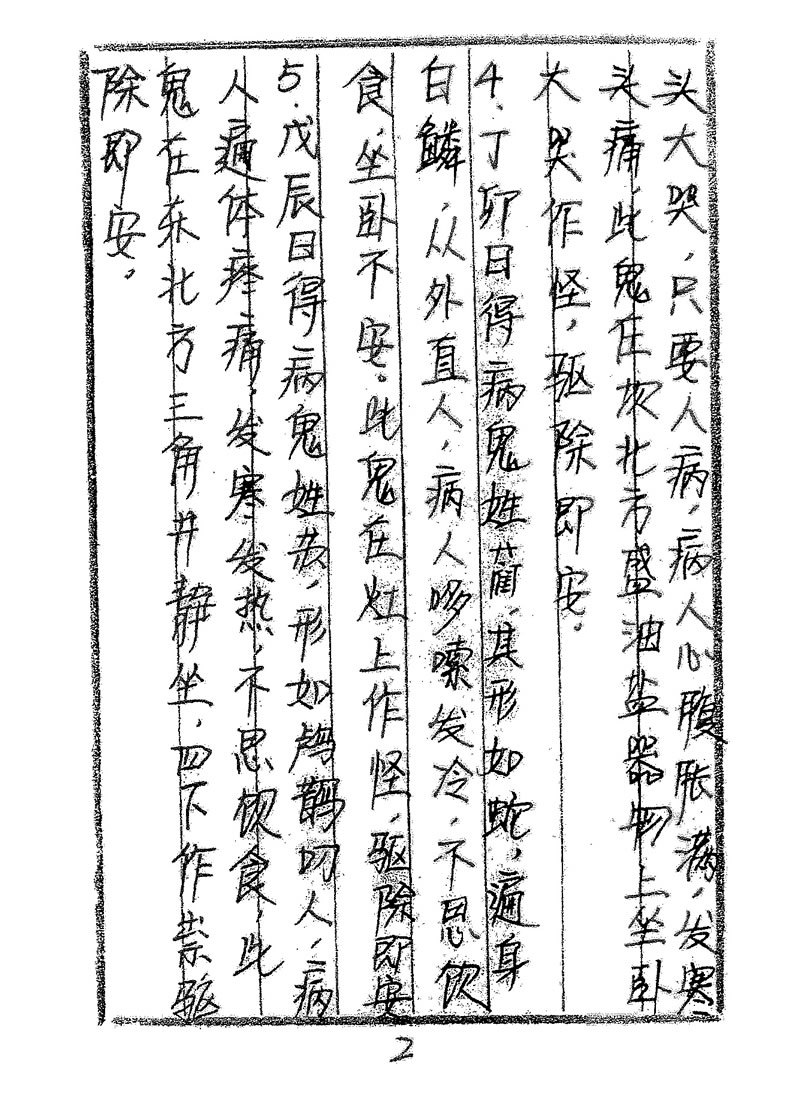 头大哭，只要人病，病人心腹胀满，发寒
头痛，此鬼在坎北方盛油盐器物上坐卧
大哭作怪，驱除即安。
4．丁卯日得病鬼姓蔺，其形如蛇，遍身
白鳞，从外直人，病人哆嗦发冷，不思饮
食，坐卧不安。此鬼在灶上作怪，驱除即安
5．戊辰日得病鬼姓，形如鸪鹋叨人，病
人遍体疼痛，发寒发热，不思饮食，此
鬼在东北方三角井静坐，四下作祟驱
除即安。
2